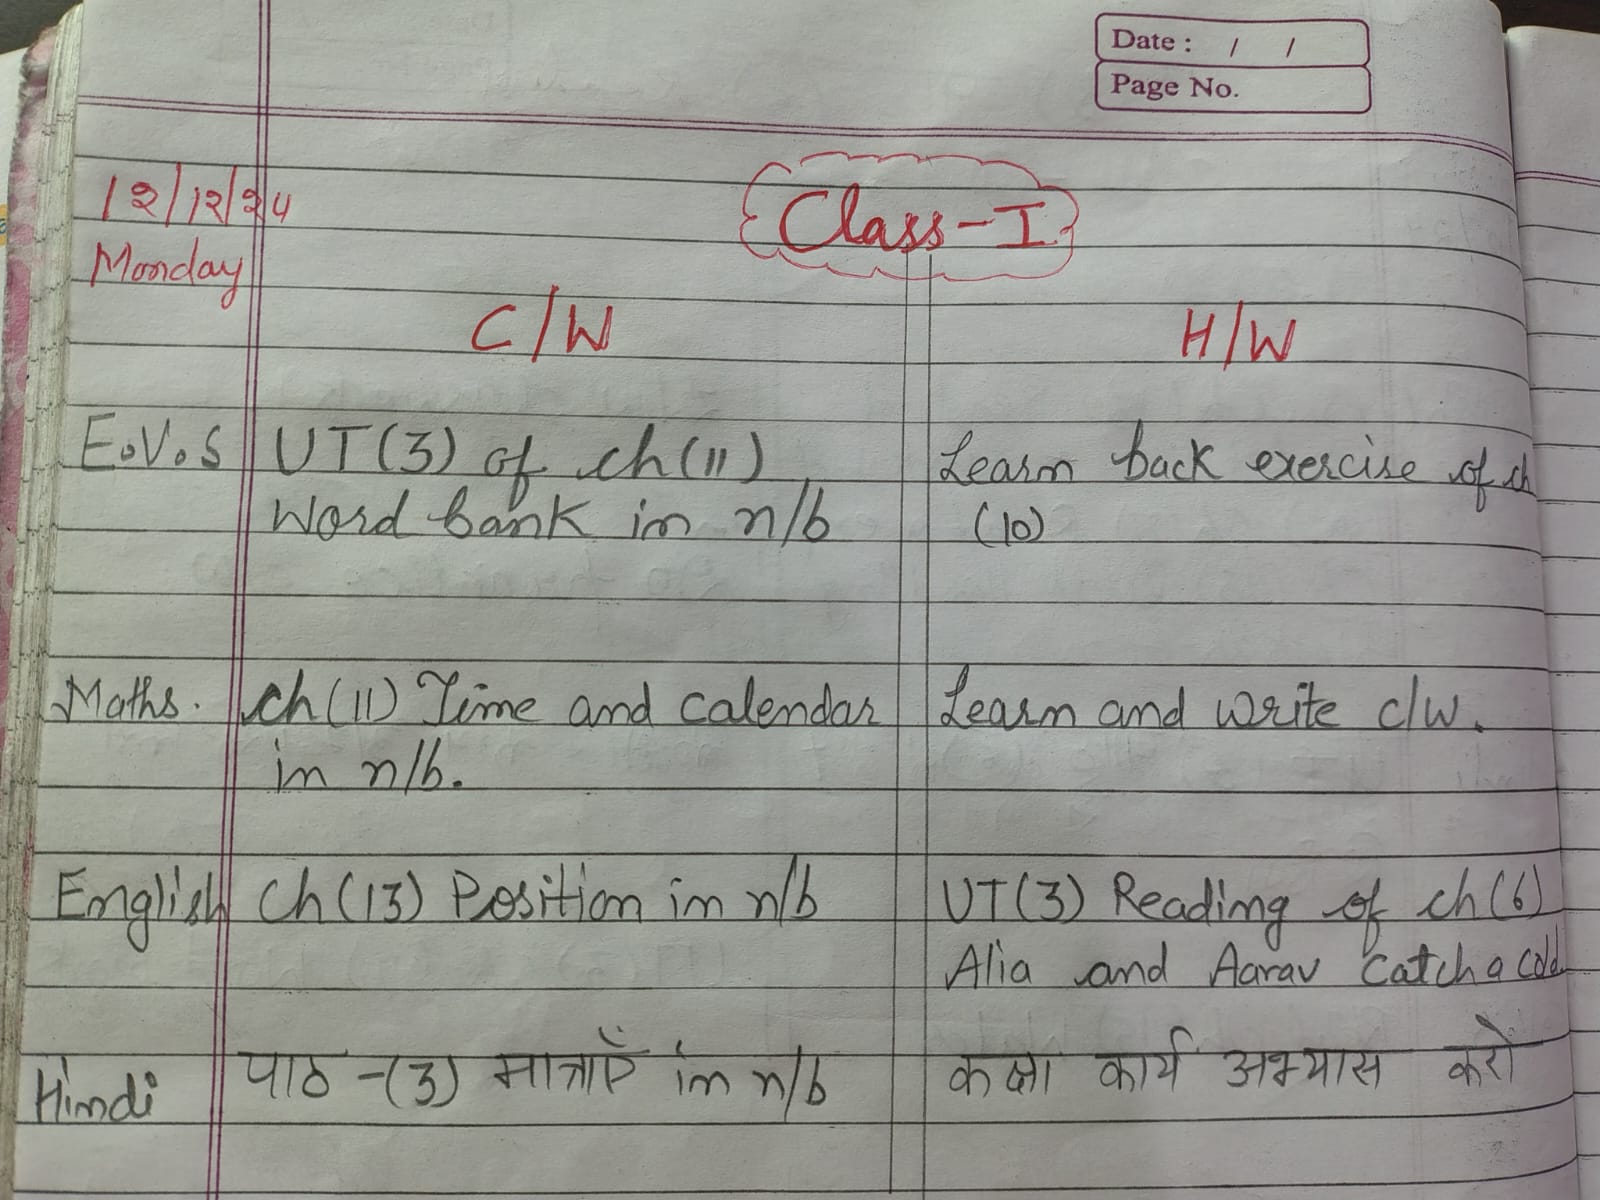 Date : / /
Page No.
12/12/24
Monday
Class-I
C/W
H/W
E.V.S
UT(3) of ch(11)
Word bank in n/b
Learn back exercise of ch
(10)
Maths.
ch(11) Time and calendar
in n/b.
Learn and write c/w.
English
Ch(13) Position in n/b
UT(3) Reading of ch(6)
Alia and Aarav Catch a cold
Hindi
पाठ -(3) मात्राएँ in n/b
कक्षा कार्य अभ्यास करो